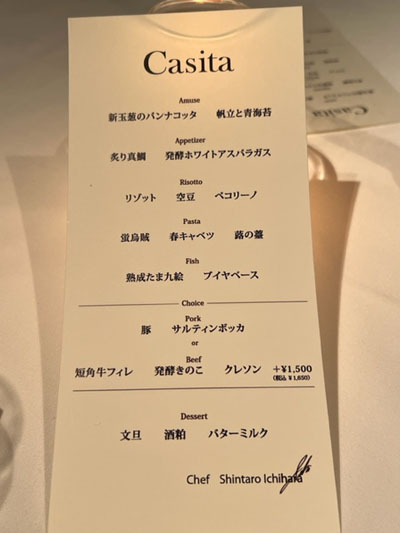 Casita
Amuse
新玉葱のパンナコッタ 帆立と青海苔
Appetizer
炙り真鯛 発酵ホワイトアスパラガス
Risotto
リゾット 空豆 ペコリーノ
Pasta
蛍烏賊 春キャベツ 蕗の薹
Fish
熟成たま九絵 ブイヤベース
Choice
Pork
豚 サルティンボッカ
or
Beef
短角牛フィレ 発酵きのこ クレソン +¥1,500
(税込 ¥1,650)
Dessert
文旦 酒粕 バターミルク
Chef Shintaro Ichihara
Casita